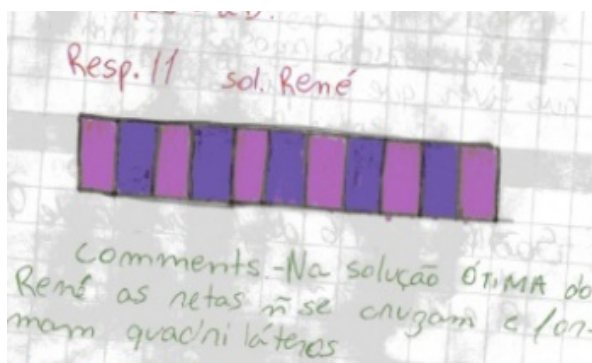 Resp. 11 sol. René
comments.-Na solução ÓTIMA do
René as retas ñ se cruzam e for-
mam quadriláteros